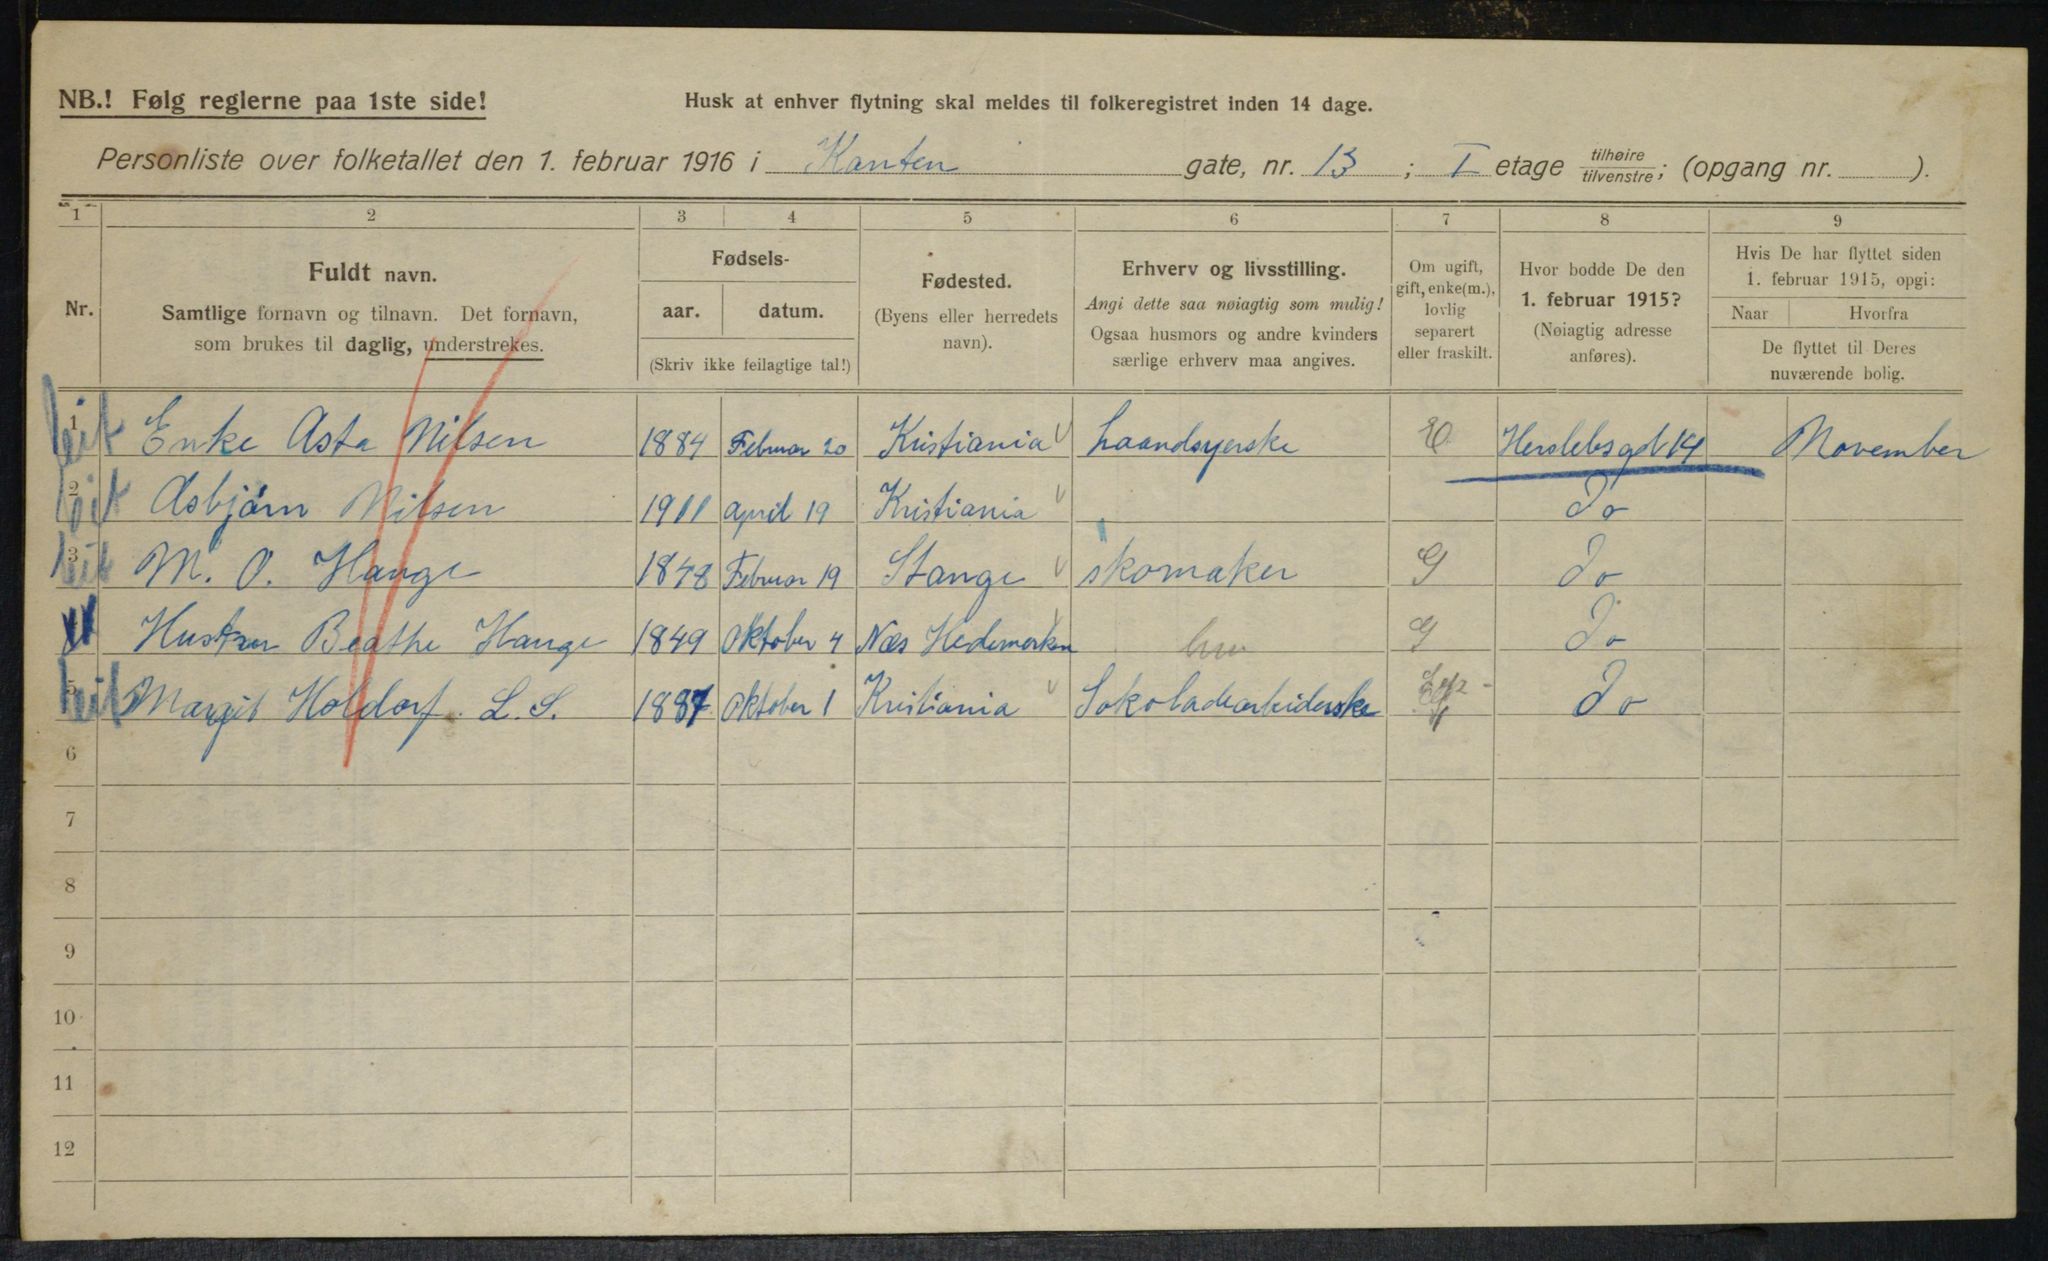 NB.! Følg reglerne paa 1ste side!
Husk at enhver flytning skal meldes til folkeregistret inden 14 dage.
Personliste over folketallet den 1. februar 1916 i Kanten gate, nr. 13; I etage tilhøire tilvenstre; (opgang nr. ).
1 2 3 4 5 6 7 8 9
Nr.
Fuldt navn.
Samtlige fornavn og tilnavn. Det fornavn,
som brukes til daglig, understrekes.
Fødsels-
aar. datum.
(Skriv ikke feilagtige tal!)
Fødested.
(Byens eller herredets
navn).
Erhverv og livsstilling.
Angi dette saa nøiagtig som mulig!
Ogsaa husmors og andre kvinders
særlige erhverv maa angives.
Om ugift,
gift, enke(m.),
lovlig
separert
eller fraskilt.
Hvor bodde De den
1. februar 1915?
(Nøiagtig adresse
anføres).
Hvis De har flyttet siden
1. februar 1915, opgi:
Naar Hvorfra
De flyttet til Deres
nuværende bolig.
1 Enke Asta Nilsen 1884 Februar 20 Kristiania Laandsyerske E Herslebsgt 14 November
2 Asbjørn Nilsen 1911 april 19 Kristiania Do
3 M. O. Hauge 1848 Februar 19 Stange skomaker G Do
Hustru Beathe Hauge 1849 Oktober 4 Næs Hedemarken hm G Do
5 Margit Holdorf L. S. 1887 Oktober 1 Kristiania Sokoladearbiderske Do
6
7
8
9
10
11
12